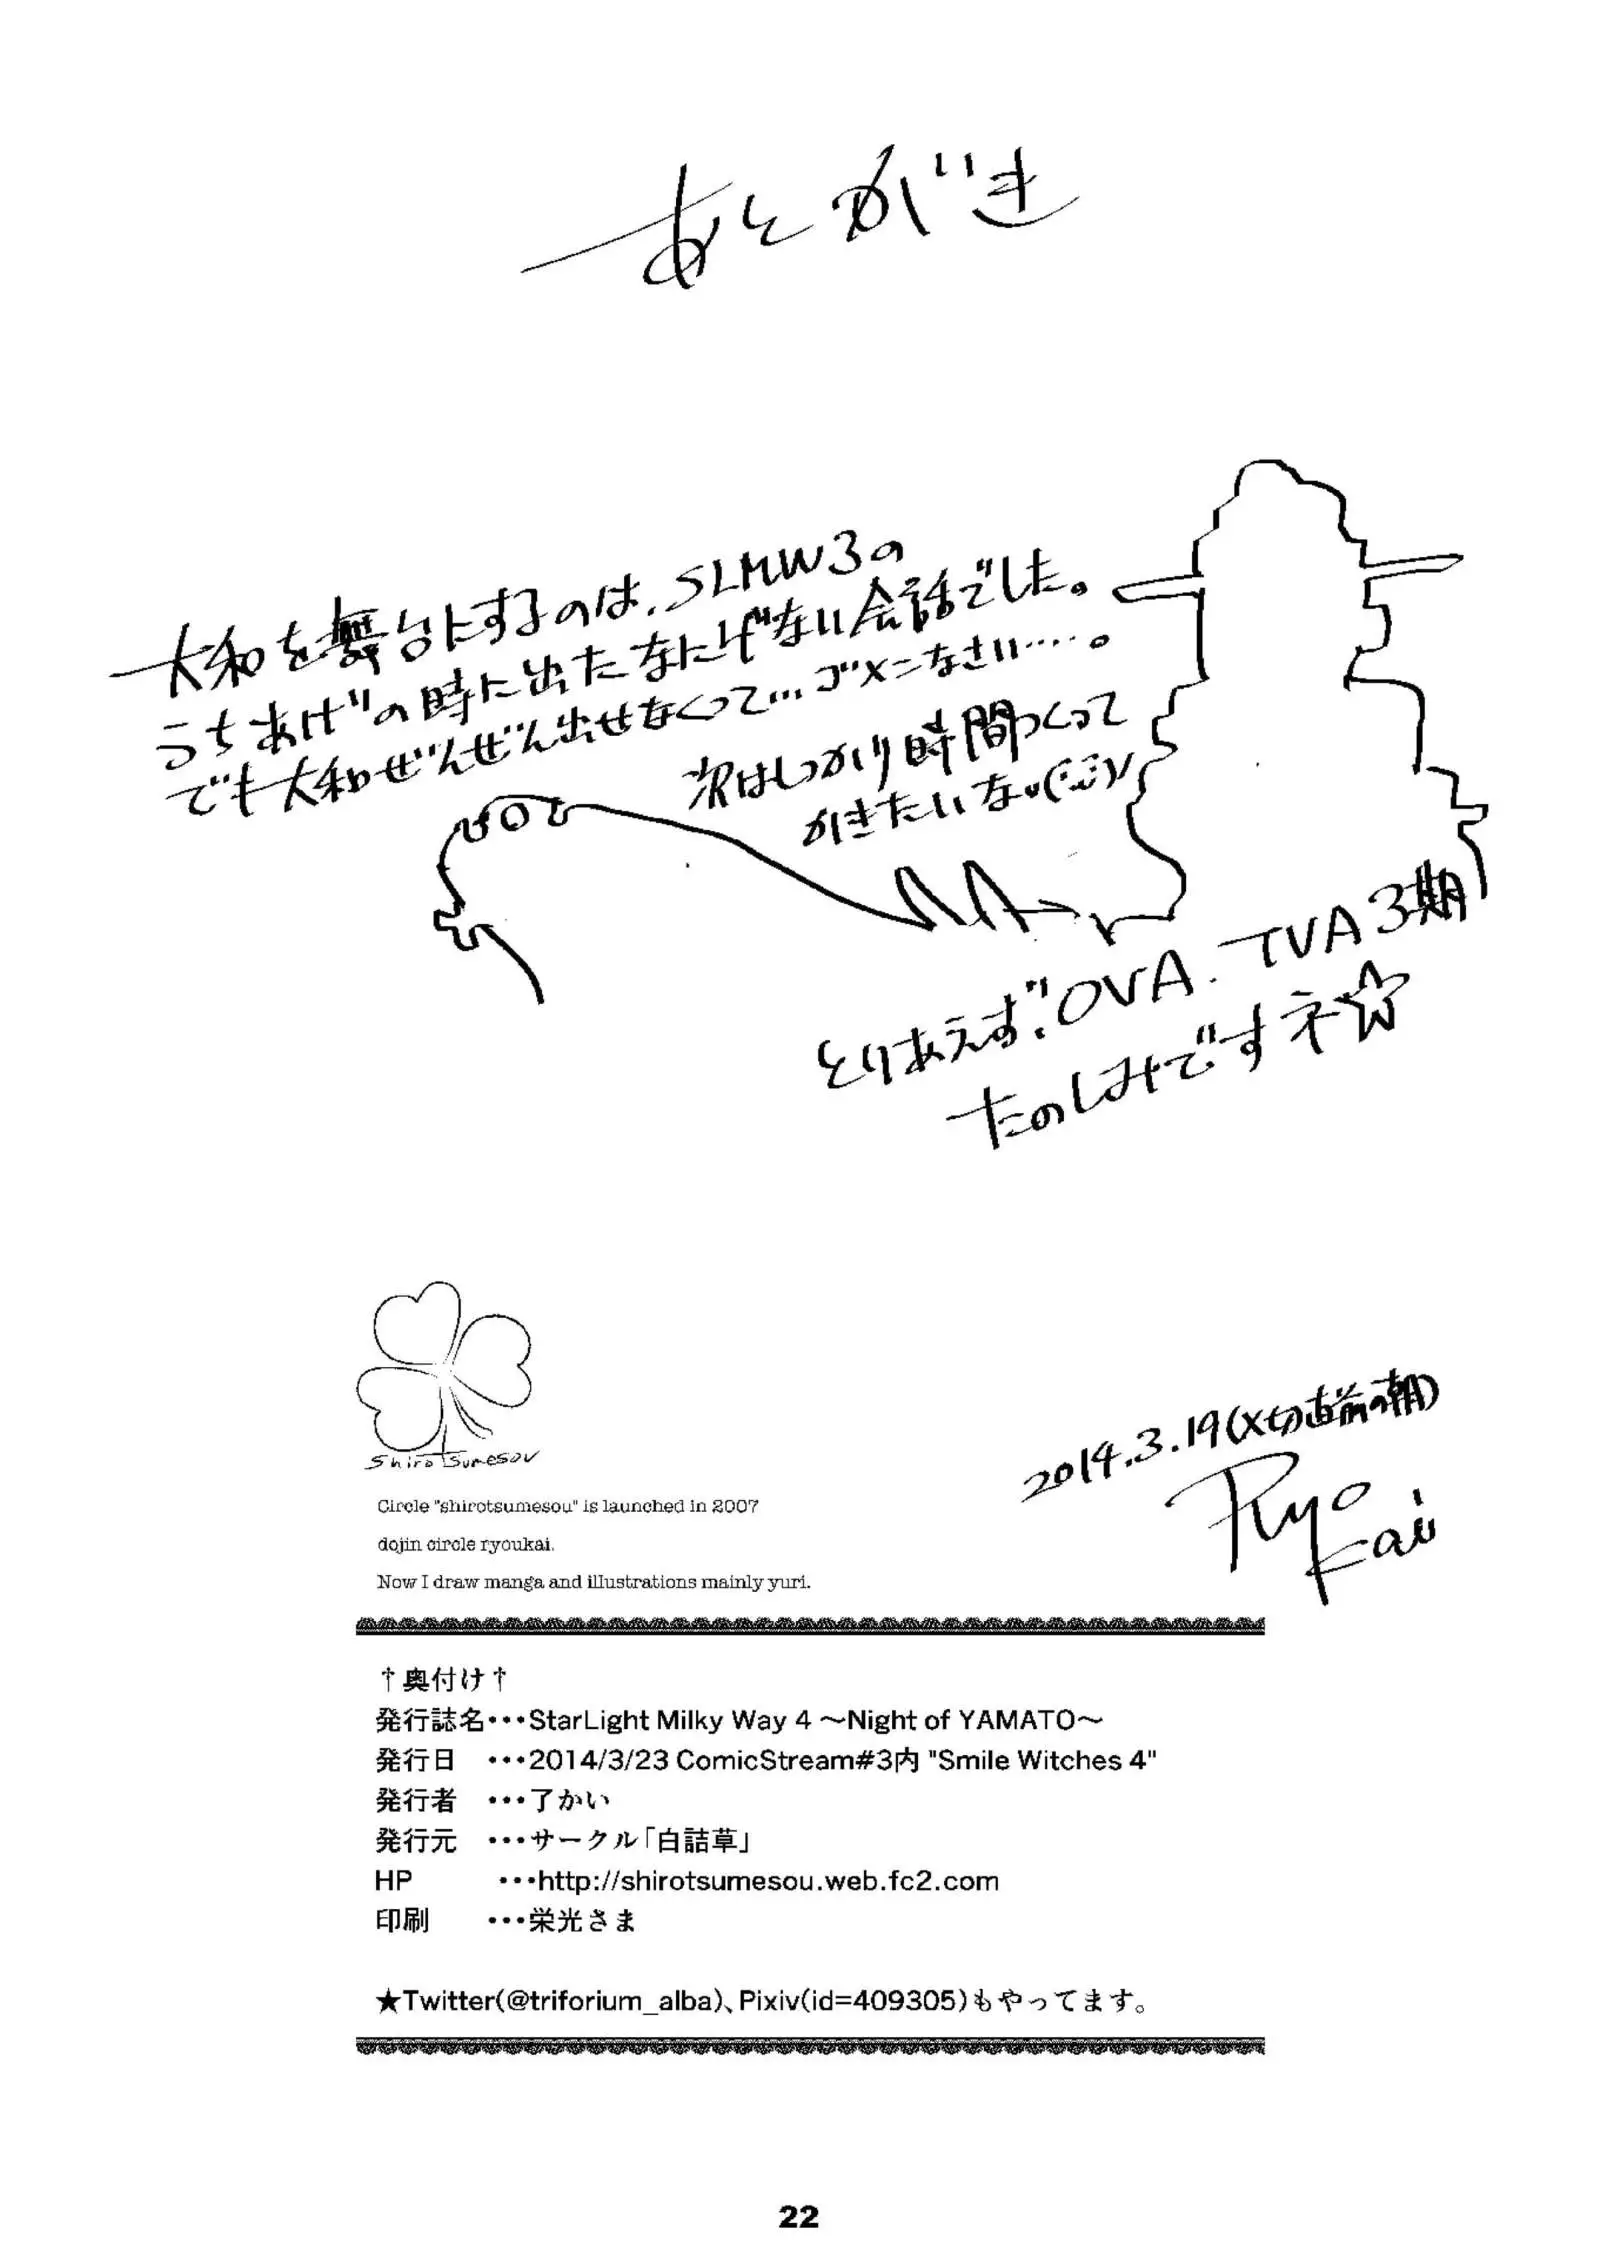 あとがき
大和を舞台にするのは、SLMW3の
うちあげの時に出たなにげない会話でした。
でも大和ぜんぜん出せなくって…ゴメンなさい…。
次はしっかり時間つくって
かきたいな
とりあえず、OVA、TVA3期
たのしみですネ☆
shirotsumesou
2014.3.19(〆切直前の朝)
Ryo
Kai
Circle "shirotsumesou" is launched in 2007
dojin circle ryoukai.
Now I draw manga and illustrations mainly yuri.
†奥付け†
発行誌名・・・StarLight Milky Way 4 〜Night of YAMATO〜
発行日 ・・・2014/3/23 ComicStream#3内 "Smile Witches 4"
発行者 ・・・了かい
発行元 ・・・サークル「白詰草」
HP ・・・http://shirotsumesou.web.fc2.com
印刷 ・・・栄光さま
★Twitter(@triforium_alba)、Pixiv(id=409305)もやってます。
22